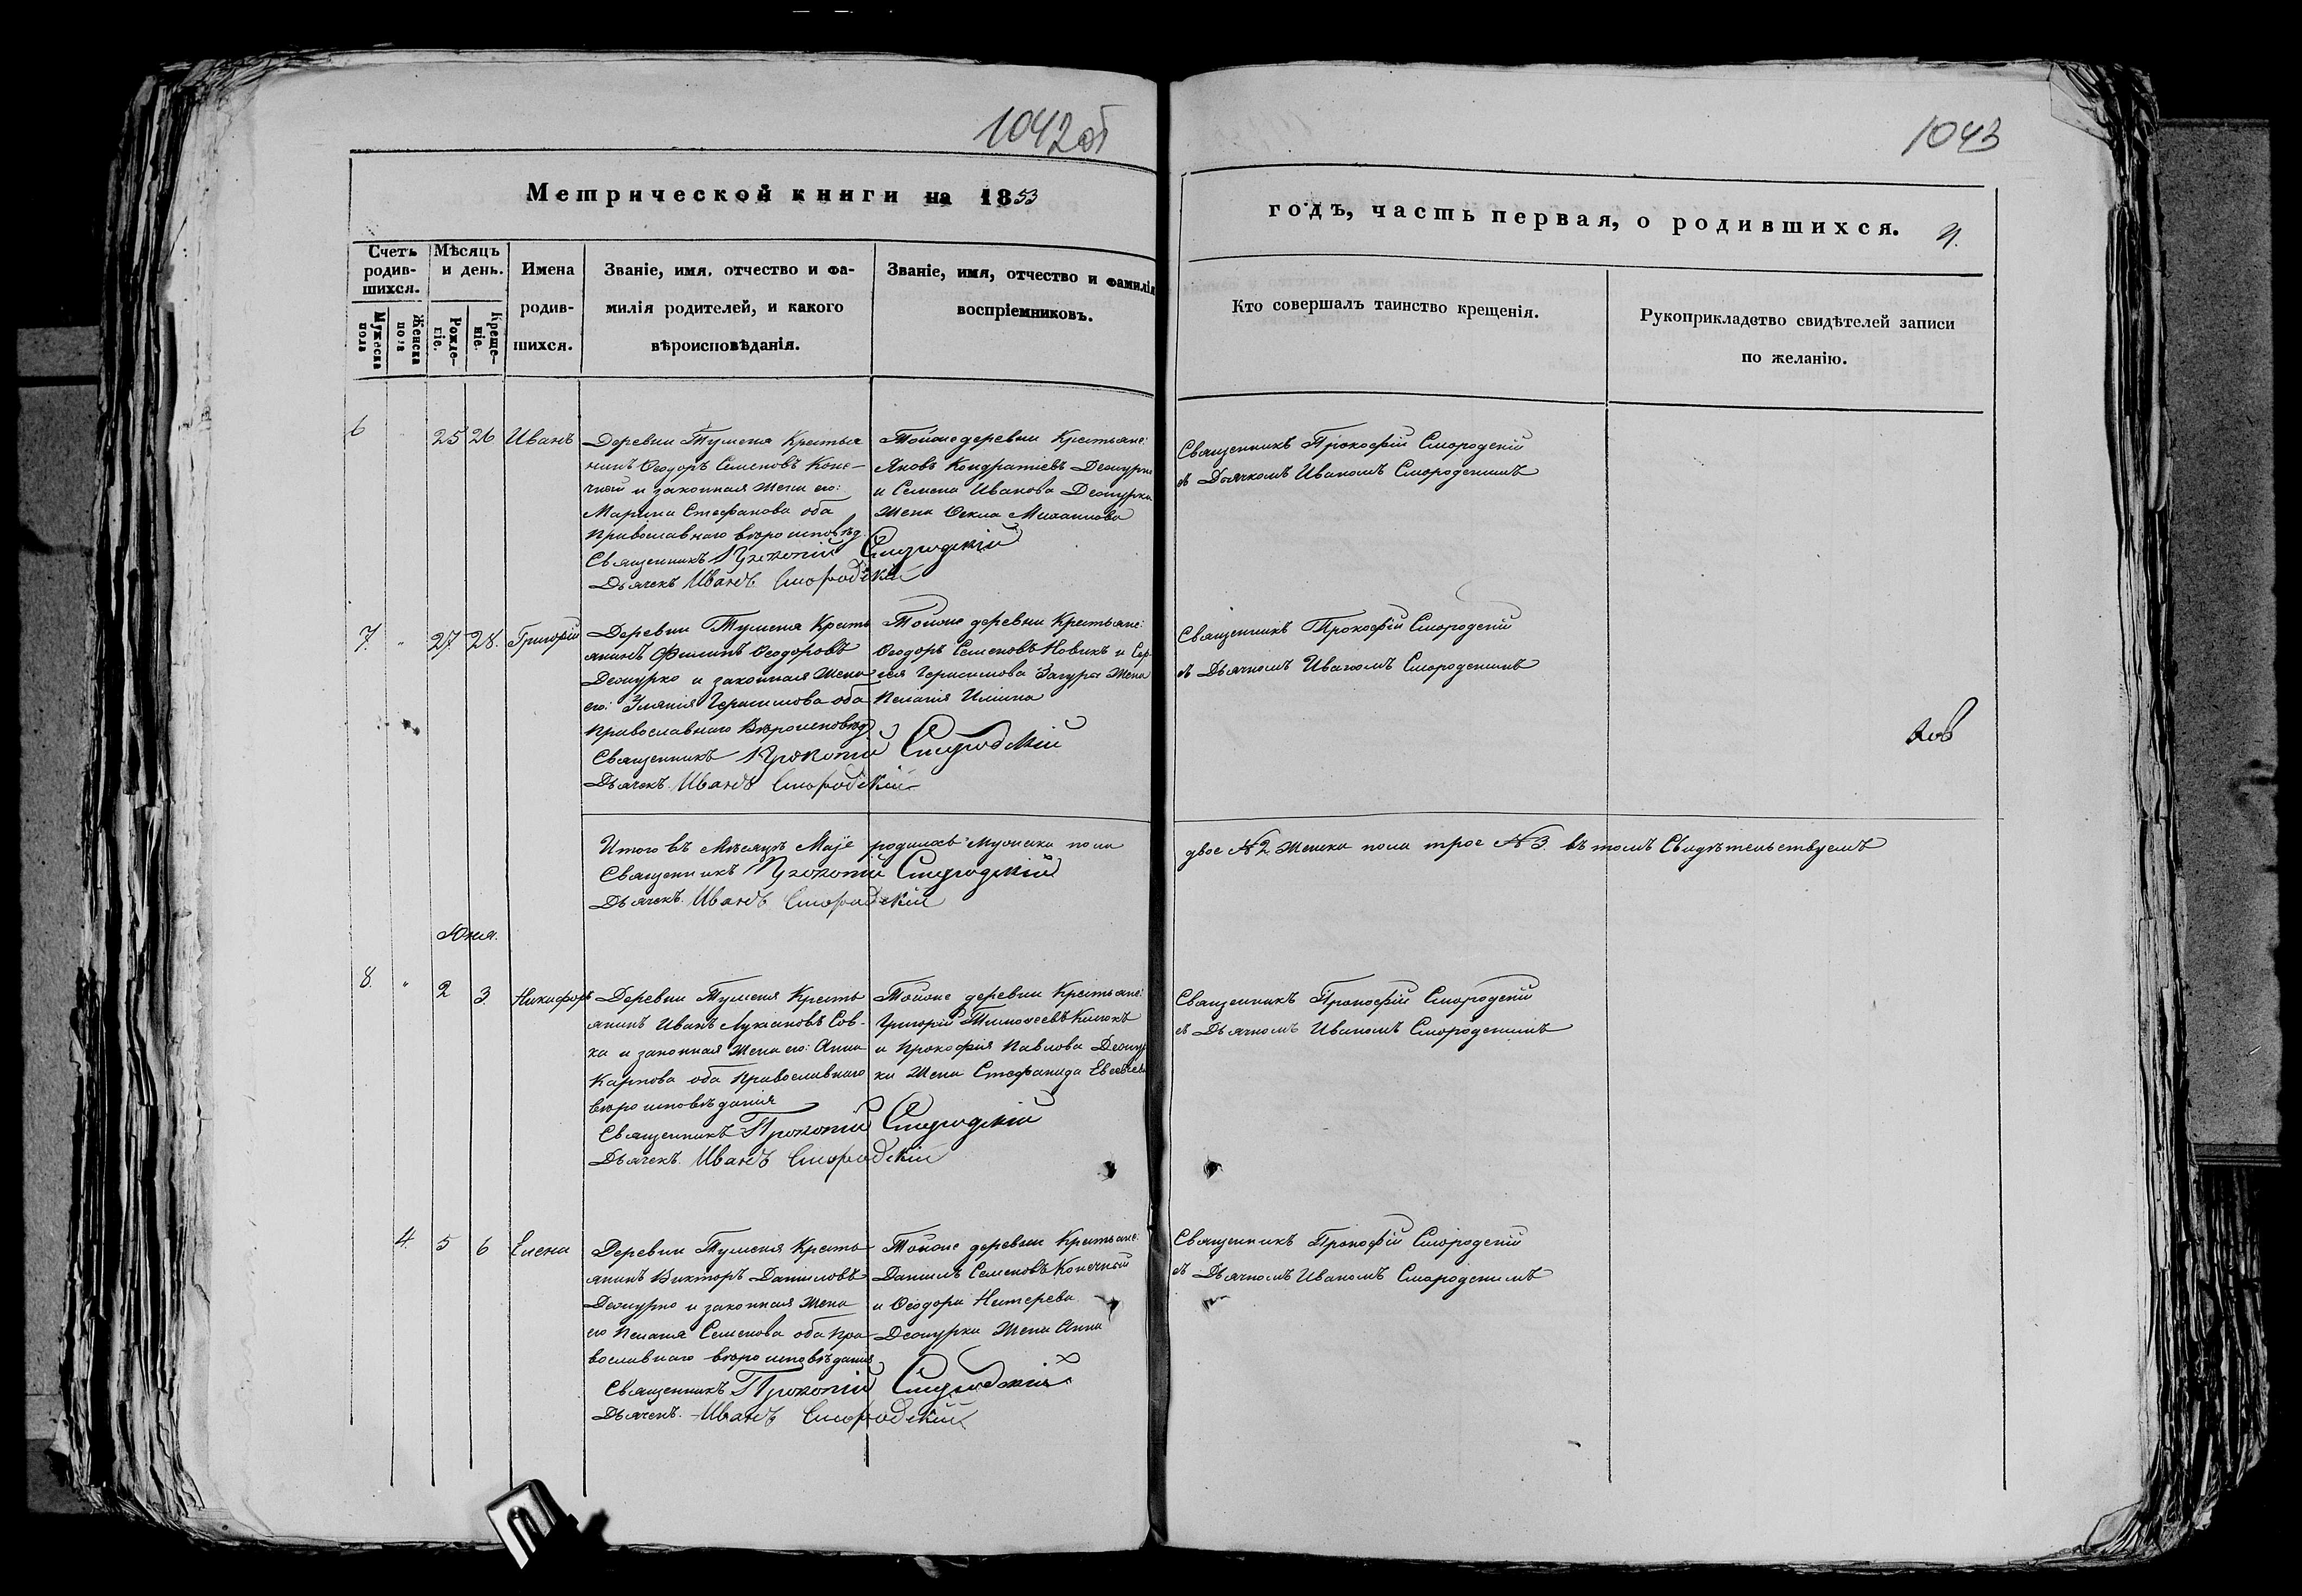 1042об
1043
Метрической книги на 1853
годъ, часть первая, о родившихся.
Счетъ родив-шихся.
Мужеска пола
Женска пола
Мѣсяцъ и день.
Рожде-ніе.
Креще-ніе.
Имена
родив-
шихся.
Званіе, имя, отчество и фа-
милія родителей, и какого
вѣроисповѣданія.
Званіе, имя, отчество и фамилія
воспріемниковъ.
Кто совершалъ таинство крещенія.
Рукоприкладство свидѣтелей записи
по желанію.
6 25 26 Иванъ
Деревни Тумена Крестья
нинъ Ѳеодоръ Семеновъ Коне-
чной и законная жена его:
Марина Стефанова оба
православнаго вѣроисповѣд.
Священникъ Прокопій Смородскій
Дьячекъ Иванъ Смородскій
Тойоже деревни Крестьяне:
Яковъ Кондратіевъ
и Семена Иванова
жена Ѳекла Михаилова
Священникъ Прокофій Смородскій
съ Дьячкомъ Иваномъ Смородскимъ
7. 27. 28. Григорій
Деревни Тумена Кресть
янинъ Филипъ Ѳеодоровъ
и законная жена
его: Герасимова оба
православнаго Вѣроисповѣд
Священникъ Прокопій Смородскій
Дьячекъ Иванъ Смородскій
Тойоже деревни Крестьяне:
Ѳеодоръ Семеновъ Новикъ и Сер
гея Герасимова жена
Пелагія Ильина
Священникъ Прокофій Смородскій
съ Дьячкомъ Иваномъ Смородскимъ
Итого въ Мѣсяцѣ Маіе родилось мужска пола
двое №2. женска пола трое №3. въ томъ Свидѣтельствуемъ
Священникъ Прокопій Смородскій
Дьячекъ. Иванъ Смородскій
Юнія.
8. 2 3. Никифоръ
Деревни Тумена Кресть
янинъ Иванъ Лукіановъ Сов-
ка и законная жена его: Анна
Карпова оба православнаго
вѣроисповѣданія
Священникъ Прокопій Смородскій
Дьячекъ. Иванъ Смородскій
Тойоже деревни Крестьяне:
Григорій Тимоѳеевъ
и Прокофія Павлова
ки жена Стефанида
Священникъ Прокофій Смородскій
съ Дьячкомъ Иваномъ Смородскимъ
4. 5 6 Елена
Деревни Тумена Кресть
янинъ Викторъ Даниловъ
и законная жена
его Пелагія Семенова оба пра
вославнаго вѣроисповѣданія
Священникъ Прокопій Смородскій
Дьячекъ. Иванъ Смородскій
Тойоже деревни Крестьяне:
Даниилъ Семеновъ Конечной
и Ѳеодора
жена Анна
Священникъ Прокофій Смородскій
съ Дьячкомъ Иваномъ Смородскимъ